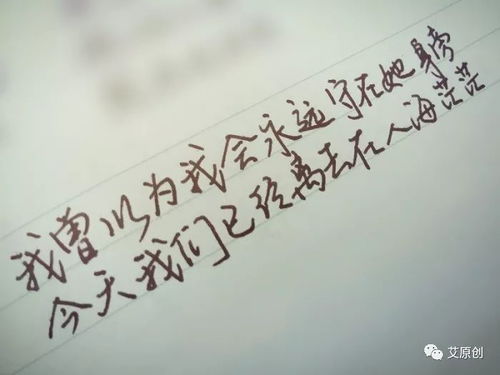 我曾以为我会永远守在她身旁
今天我们已经离去在人海茫茫
艾原创